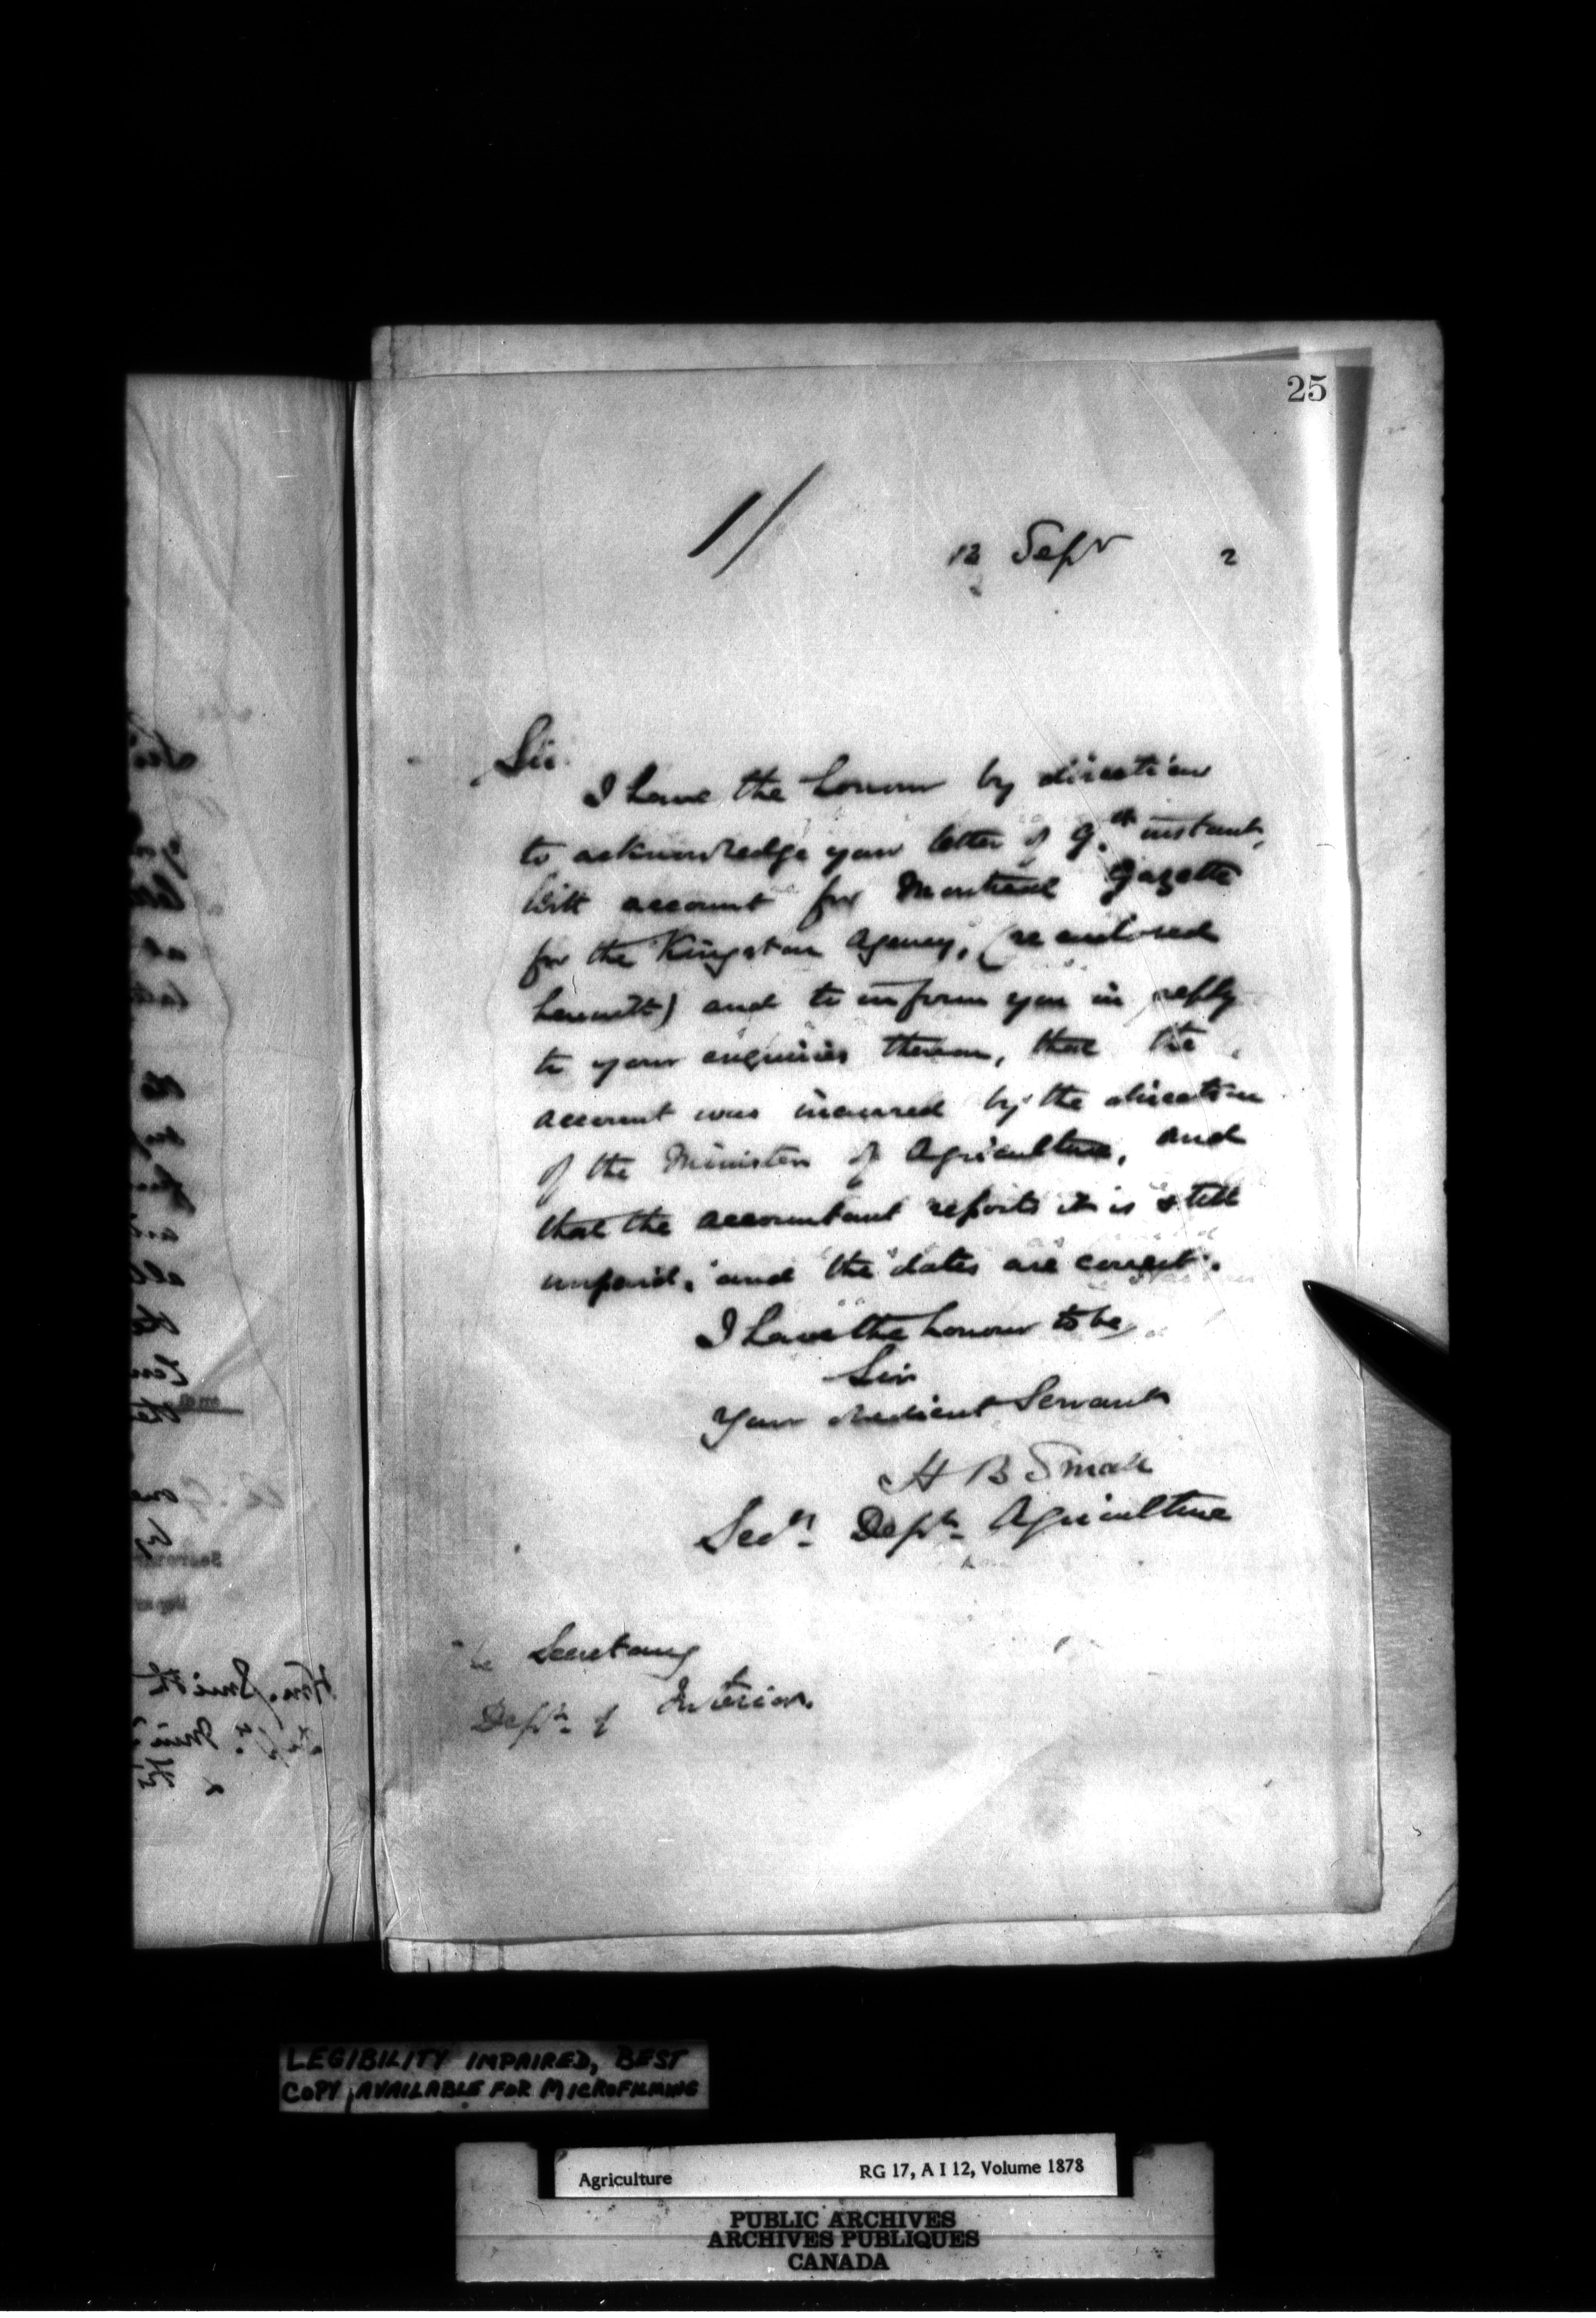 25
1/
12 Sepr 2
Sir
I have the honour by direction
to acknowledge your letter of 9th instant,
with account for Montreal Gazette
for the Kingston Agency, (re enclosed
herewith) and to inform you in reply
to your enquiries thereon, that the
account was incurred by the direction
of the Minister of Agriculture, and
that the accountant reports it is still
unpaid, and the dates are correct.
I have the honour to be
Sir
Your obedient Servant
H B Small
Secy. Dept. Agriculture
Secretary
Dept. of Interior.
Wm. Smith
LEGIBILITY IMPAIRED, BEST
COPY AVAILABLE FOR MICROFILMING
Agriculture RG 17, A I 12, Volume 1878
PUBLIC ARCHIVES
ARCHIVES PUBLIQUES
CANADA